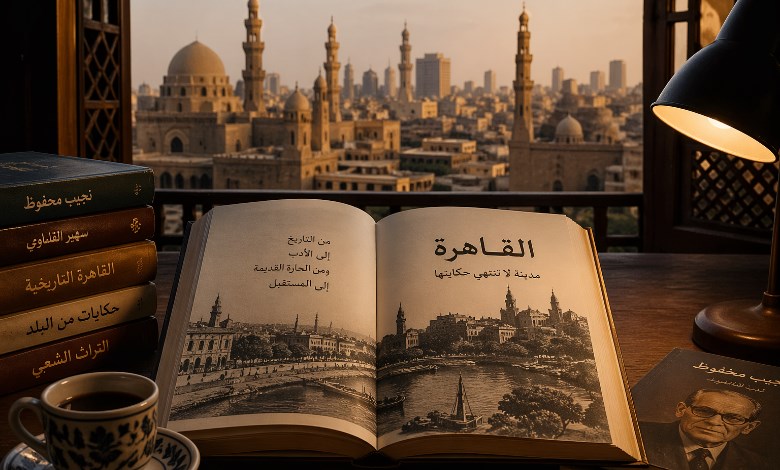 نجيب محفوظ
سهير القلماوي
القاهرة التاريخية
حكايات من البلد
التراث الشعبي
القـاهرة
مدينة لا تنتهي حكايتها
من التاريخ
إلى الأدب
ومن الحارة القديمة
إلى المستقبل
نجيب محفوظ